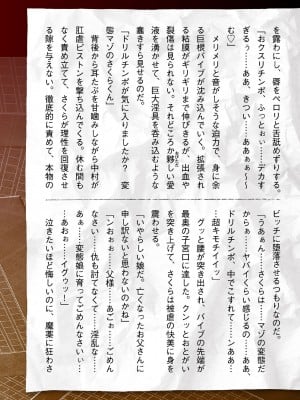 を露わにし、唇をペロリと舌舐めずりする。
「おクスリチンポ、ふっとぉぃ……デカす
ぎるぅ……ああ、きつい……ああぁぁ～～
む♡」
メリメリと音がしそうな迫力で、身に余
る巨根バイブが沈み込んでいく。拡張され
る粘膜がギリギリまで伸びきるが、出血や
裂傷は見られない。それどころか夥しい愛
液を湧かせて、巨大淫具を呑み込むような
蠢きすら見せるのだ。
「ドリルチンポが気に入りましたか？　変
態マゾのさくらくん」
背後から耳たぶを甘噛みしながら中村が
肛虐ピストンを撃ち込んでくる。休む間も
なく責め立てて、さくらが理性を回復させ
る隙を与えない。徹底的に責めて、本物の
ビッチに堕落させるつもりなのだ。
「うあぁん……さくらは……マゾの変態だ
からぁ……ヤバイくらい感じるの……ああ、
ドリルチンポ、中でこすれて……ンああ…
…超キモチイイッ」
グッと腰が突き出され、バイブの先端が
最奥の子宮口に達した。クンッとおとがい
を突き上げて、さくらは被虐の快美に身を
震わせる。
「いやらしい娘だ。亡くなったお父さんに
申し訳ないと思わないのかね」
「ンおぉぉ……父様……あぁ……ごめん
なさい……仇も討てなくて……淫乱な……
あぁ……変態娘に育ってごめんなさいぃ…
…あおぉ……イグゥッー」
泣きたいほど悔しいのに、魔薬に狂わさ